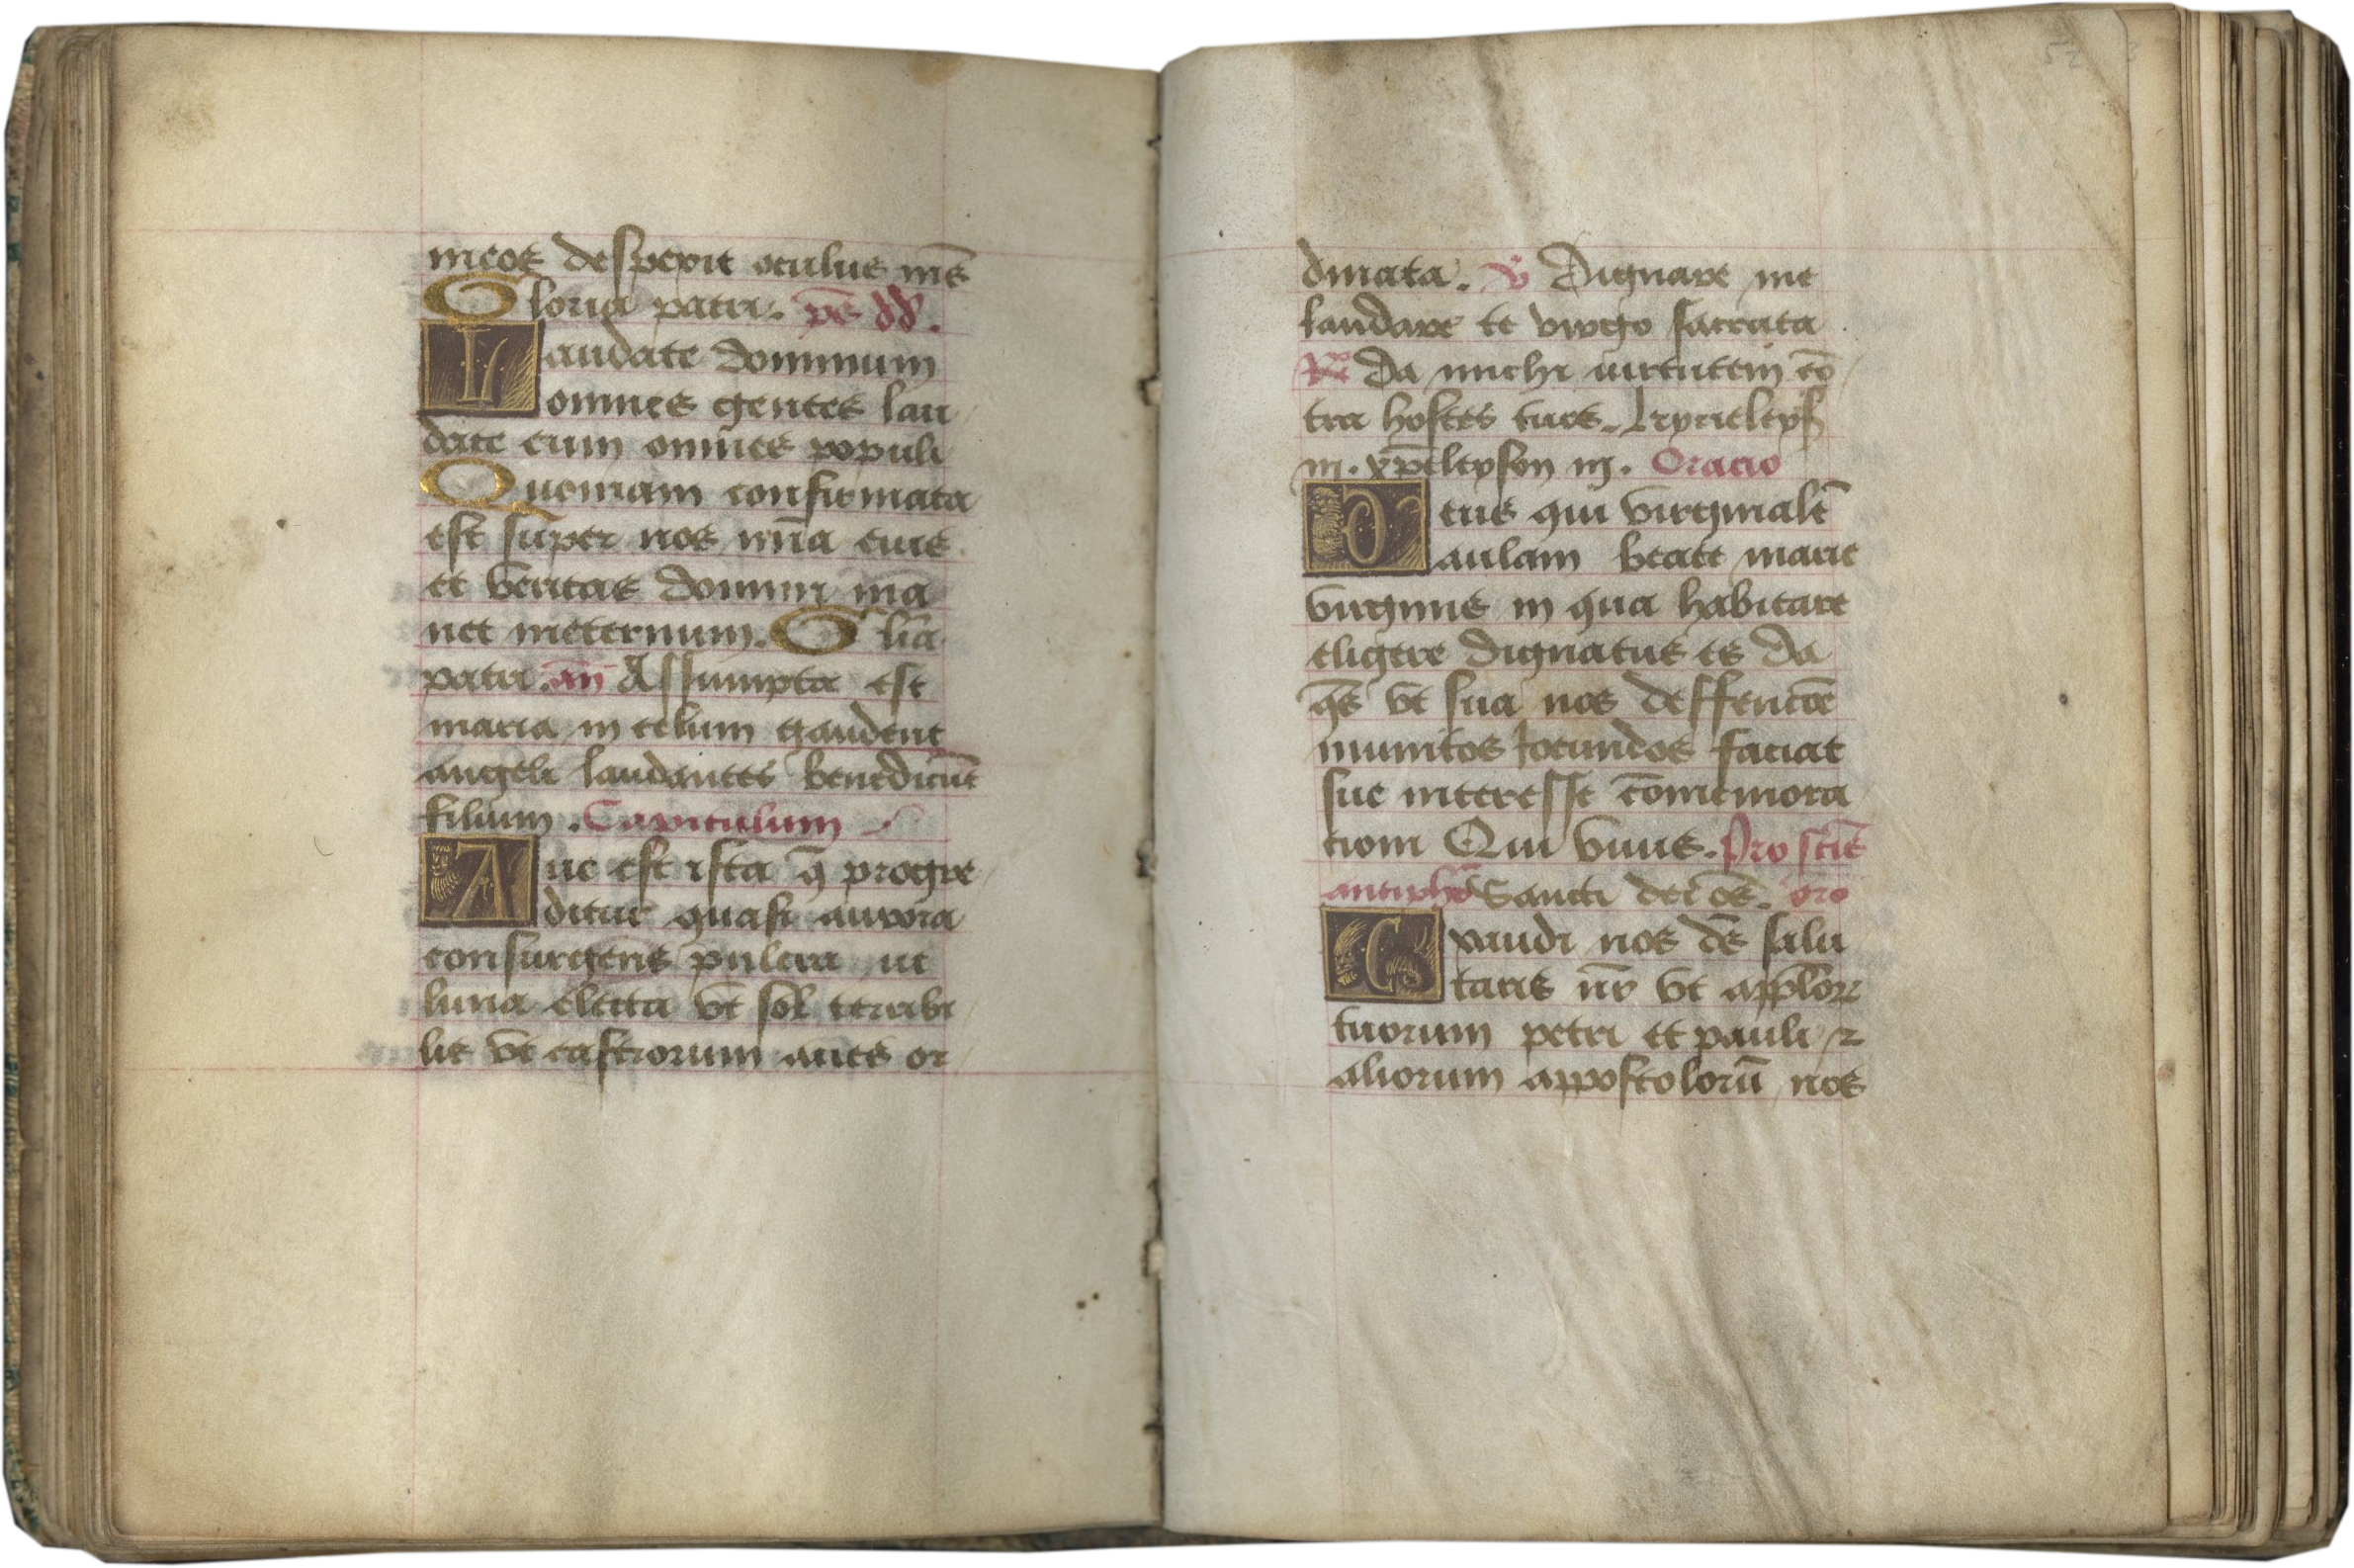 meos despexit oculus me᷒
Gloria patri. ps̄ dd̄.
Laudate dominum
omnes gentes lau
date eum omnes populi
Quoniam confirmata
est super nos mīa eius
et veritas domini ma
net ineternum. Glīa
patri. an̄ Assumpta est
maria in celum gaudent
angeli laudantes benedicūt
filium. Capitulum
Aue est ista q̄ progre
ditur quasi aurora
consurgens pulcra ut
luna electa vt sol terribi
lis vt castrorum aties or
dinata. v̄ Dignare me
laudare te virgo sacrata
R̄ da michi uirtutem cō
tra hostes tuos. kyrieleys
in. xp̄eleyson in. Oracio
Deus qui virginalē
aulam beate marie
virginis in qua habitare
eligere dignatus es da
q̄s vt sua nos deffencōe
munitos Iocundos faciat
sue interesse cōmemora
tioni Qui viuis. Pro sctīs
antiphā Sancti dei oēs. oro
Exaudi nos dē̄s salu
taris nr̄ vt appl̄orꝝ
tuorum petri et pauli ꝛ
aliorum appostolorū nos
52